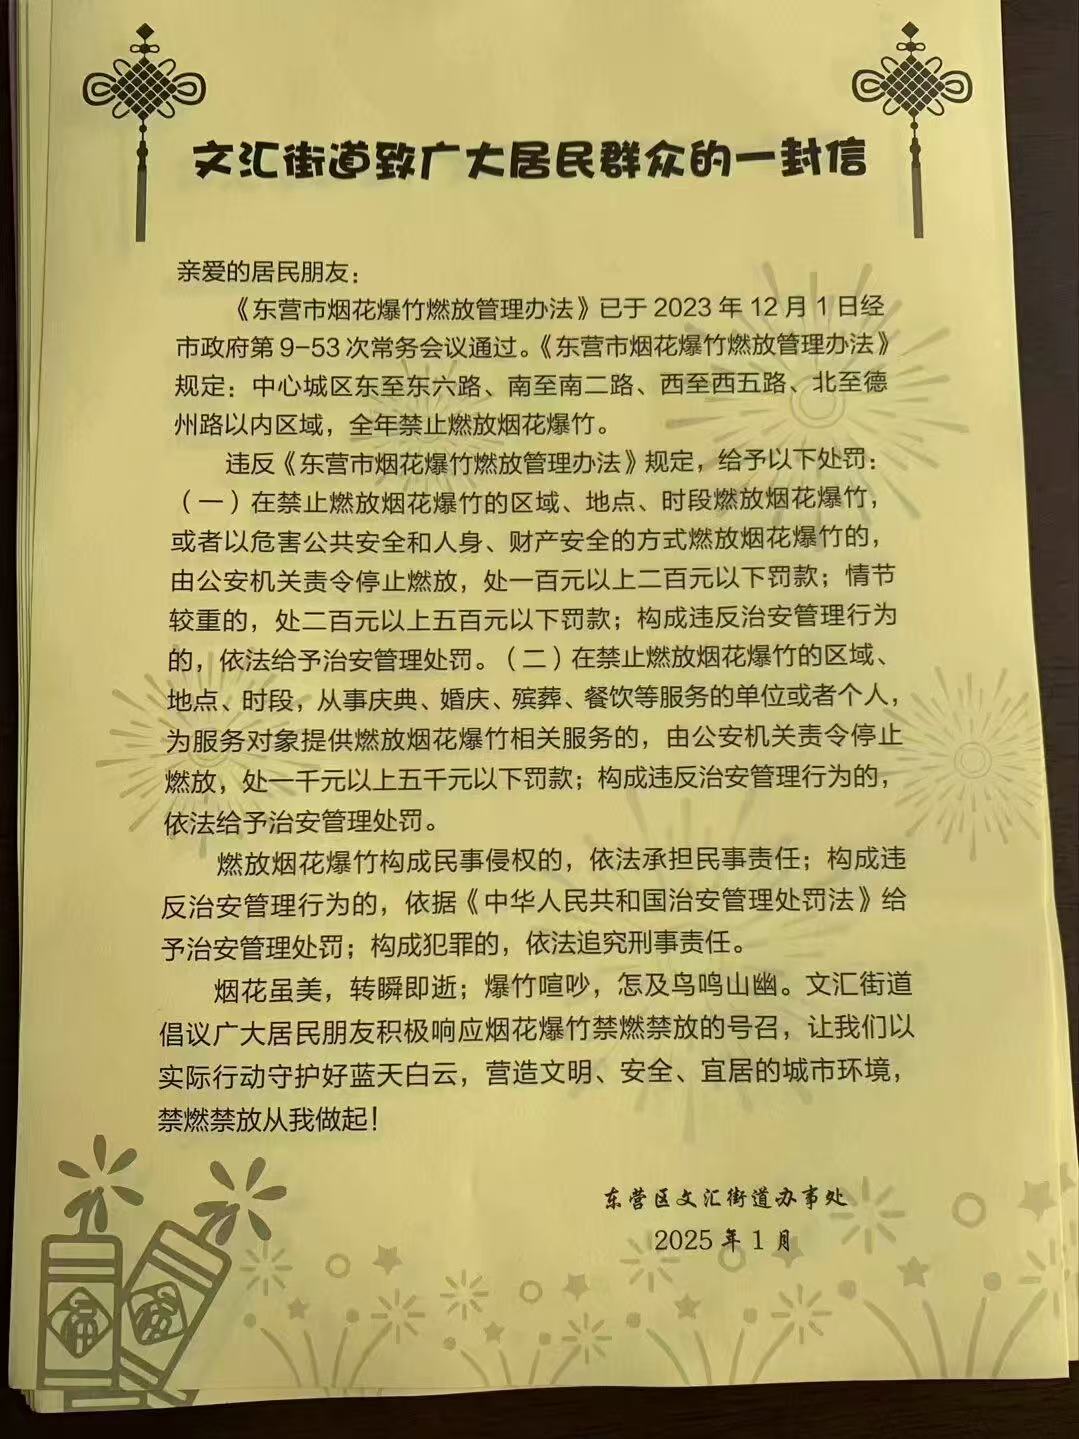 文汇街道致广大居民群众的一封信
亲爱的居民朋友：
《东营市烟花爆竹燃放管理办法》已于2023年12月1日经
市政府第9-53次常务会议通过。《东营市烟花爆竹燃放管理办法》
规定：中心城区东至东六路、南至南二路、西至西五路、北至德
州路以内区域，全年禁止燃放烟花爆竹。
违反《东营市烟花爆竹燃放管理办法》规定，给予以下处罚：
（一）在禁止燃放烟花爆竹的区域、地点、时段燃放烟花爆竹，
或者以危害公共安全和人身、财产安全的方式燃放烟花爆竹的，
由公安机关责令停止燃放，处一百元以上二百元以下罚款；情节
较重的，处二百元以上五百元以下罚款；构成违反治安管理行为
的，依法给予治安管理处罚。（二）在禁止燃放烟花爆竹的区域、
地点、时段，从事庆典、婚庆、殡葬、餐饮等服务的单位或者个人，
为服务对象提供燃放烟花爆竹相关服务的，由公安机关责令停止
燃放，处一千元以上五千元以下罚款；构成违反治安管理行为的，
依法给予治安管理处罚。
燃放烟花爆竹构成民事侵权的，依法承担民事责任；构成违
反治安管理行为的，依据《中华人民共和国治安管理处罚法》给
予治安管理处罚；构成犯罪的，依法追究刑事责任。
烟花虽美，转瞬即逝；爆竹喧吵，怎及鸟鸣山幽。文汇街道
倡议广大居民朋友积极响应烟花爆竹禁燃禁放的号召，让我们以
实际行动守护好蓝天白云，营造文明、安全、宜居的城市环境，
禁燃禁放从我做起！
东营区文汇街道办事处
2025年1月
福
福